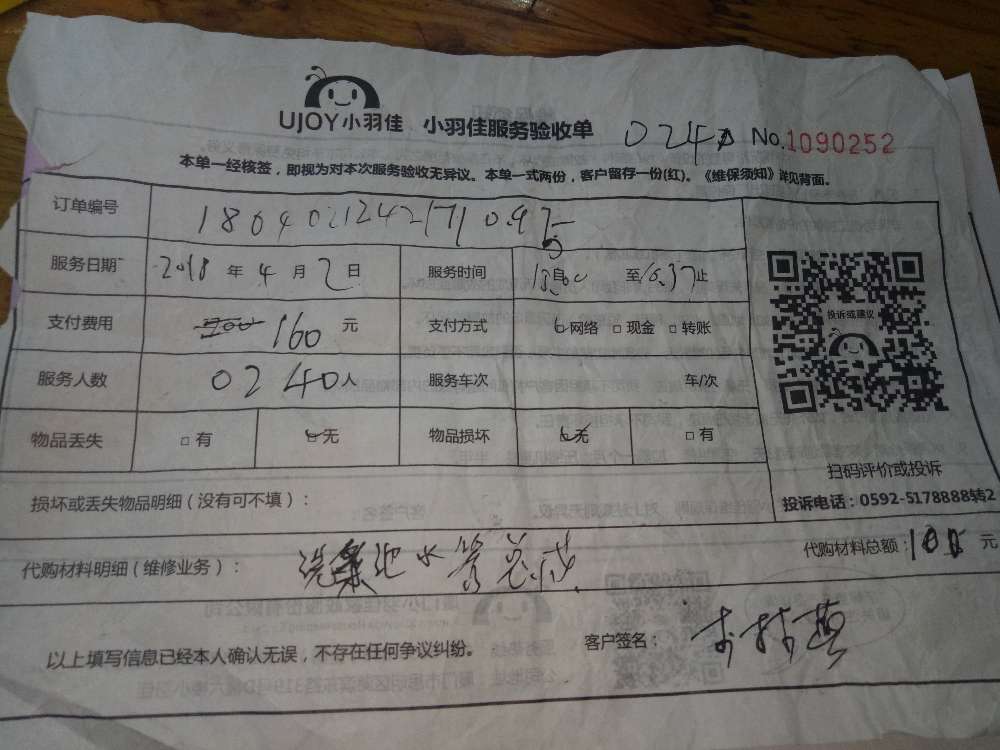 UJOY小羽佳 小羽佳服务验收单 0240 No.1090252
本单一经核签，即视为对本次服务验收无异议。本单一式两份，客户留存一份(红)。《维保须知》详见背面。
订单编号
服务日期 2018 年 4 月 2 日 服务时间 自 至16:37止
支付费用 200 160 元 支付方式 网络 □现金 □转账
服务人数 0240人 服务车次 车/次
物品丢失 □有 无 物品损坏 无 □有
投诉或建议
扫码评价或投诉
投诉电话：0592-5178888转2
损坏或丢失物品明细（没有可不填）：
代购材料明细（维修业务）： 洗 池水管
代购材料总额： 元
以上填写信息已经本人确认无误，不存在任何争议纠纷。 客户签名：